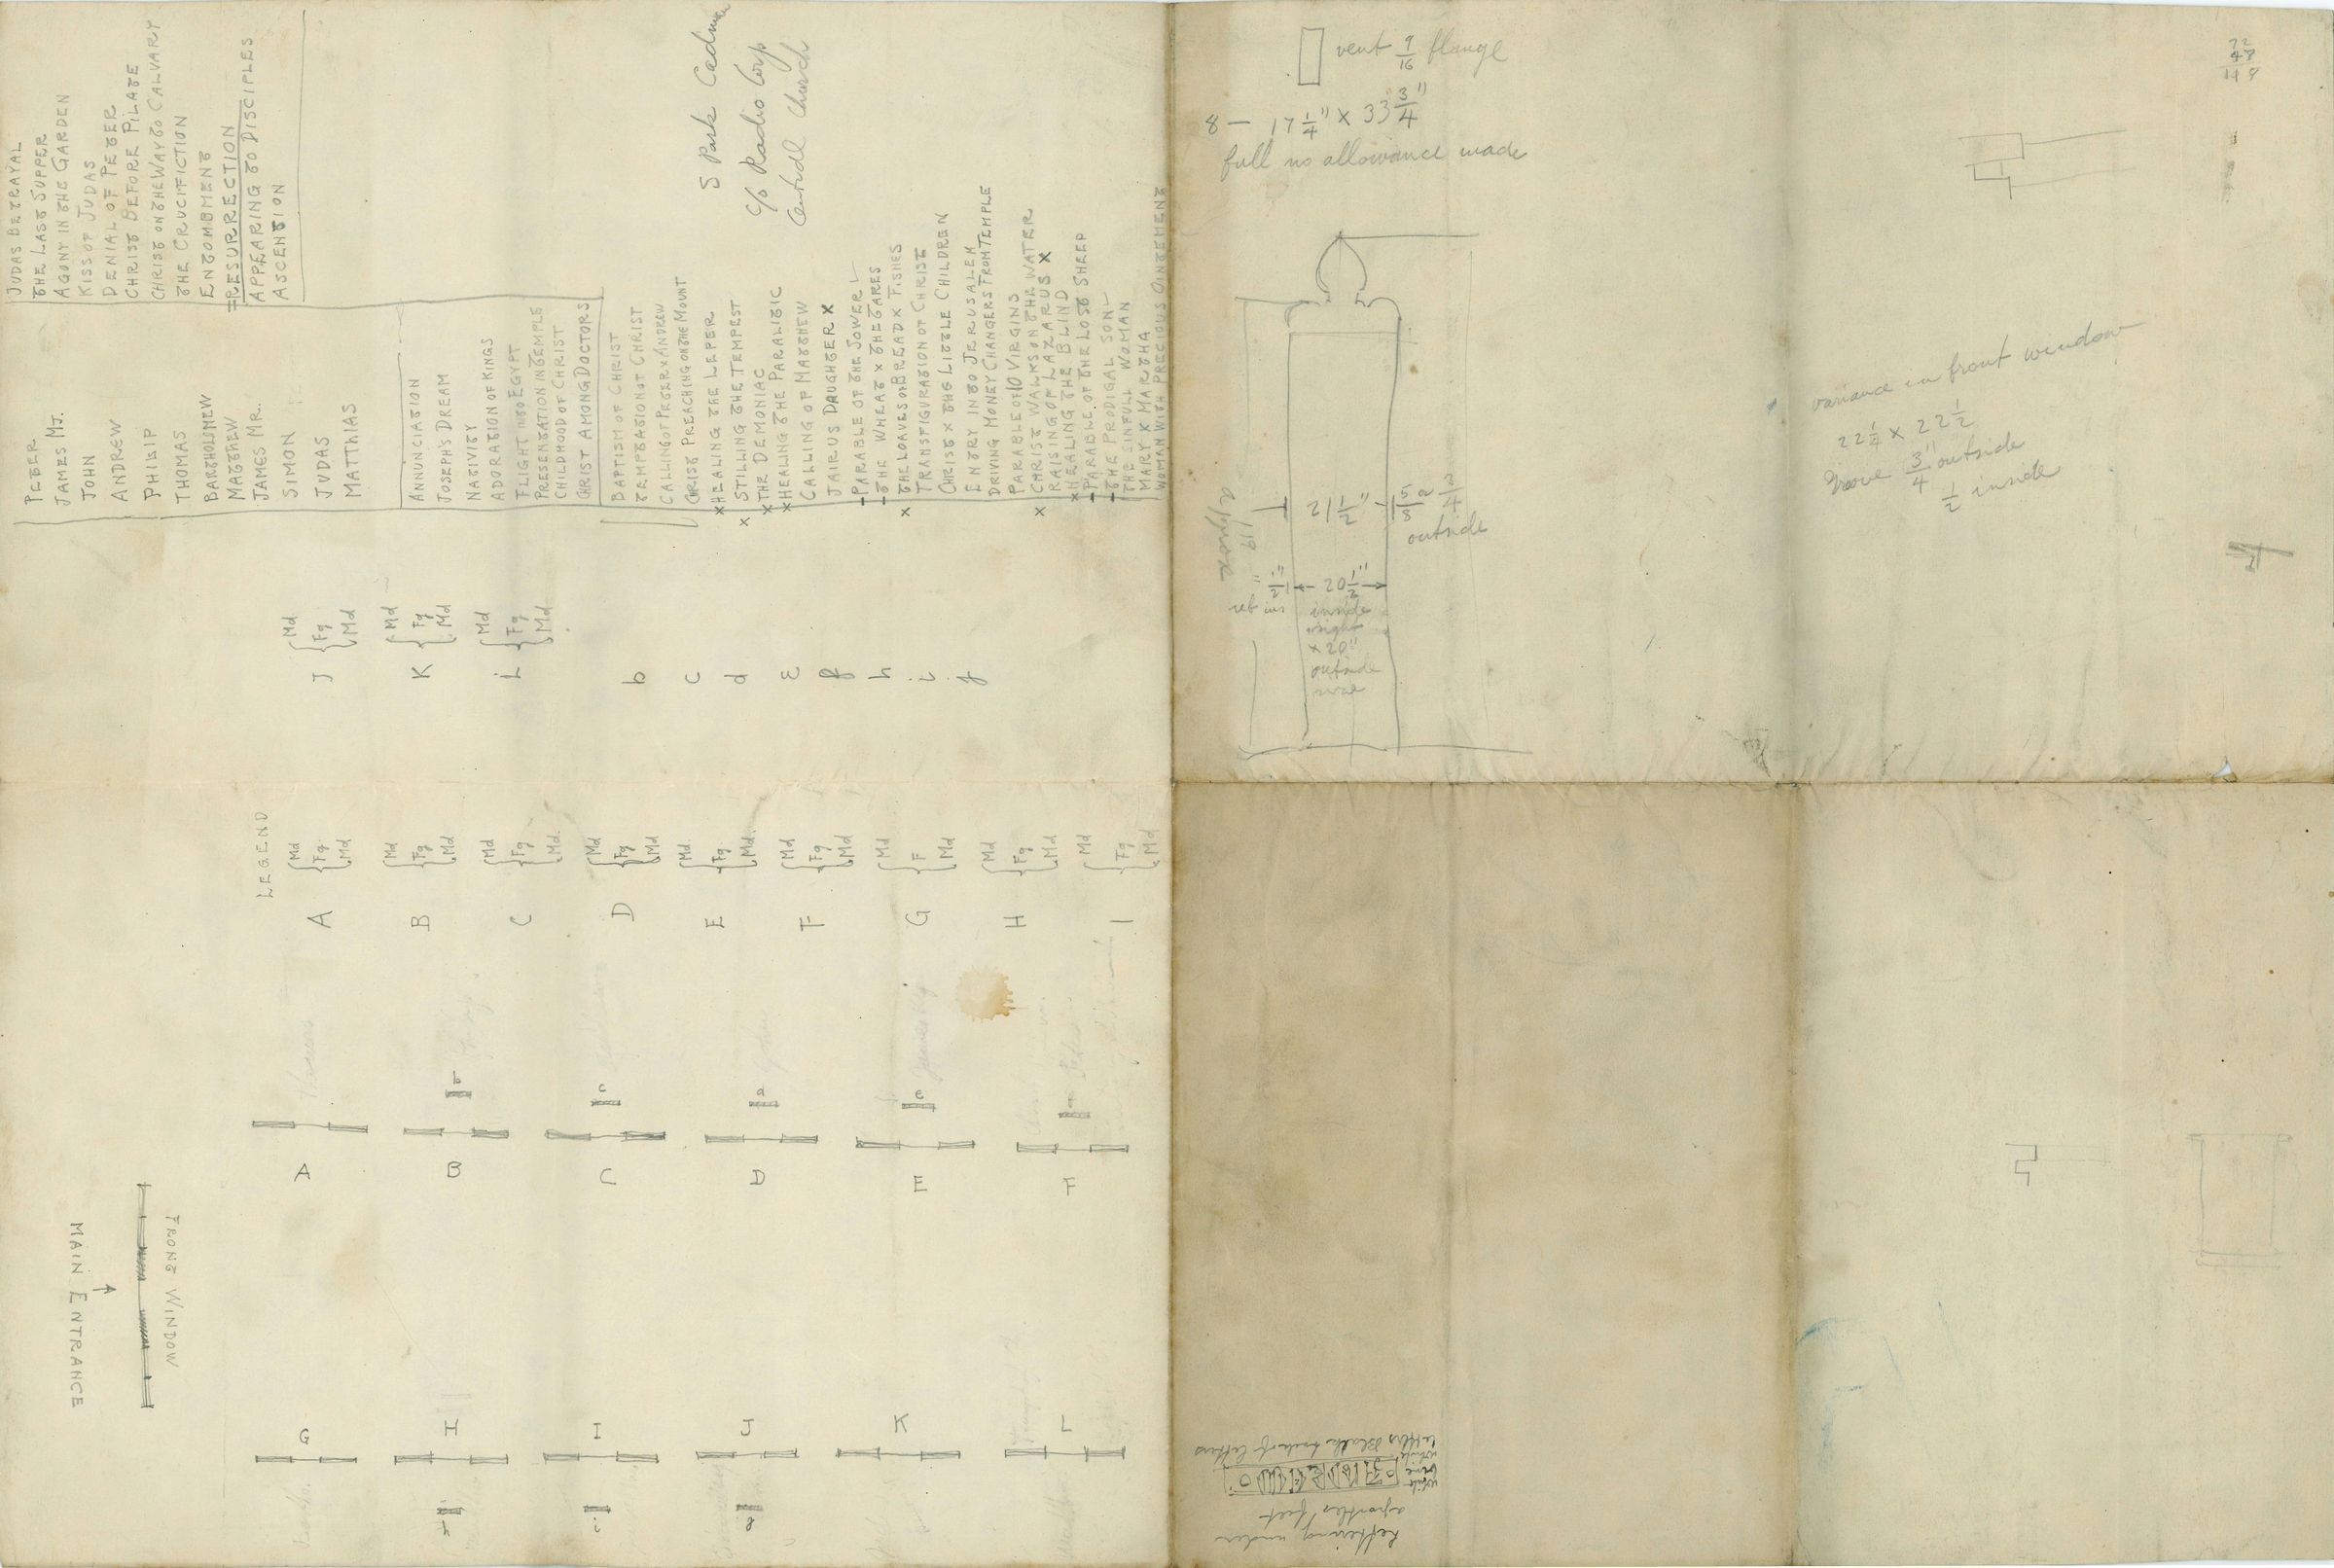 PETER
JAMES MJ.
JOHN
ANDREW
PHILIP
THOMAS
BARTHOLMEW
MATTHEW
JAMES MR.
SIMON
JUDAS
MATTHIAS
JUDAS BETRAYAL
THE LAST SUPPER
AGONY IN THE GARDEN
KISS OF JUDAS
DENIAL OF PETER
CHRIST BEFORE PILATE
CHRIST ON THE WAY TO CALVARY
THE CRUCIFICTION
ENTOMBMENT
RESURRECTION
APPEARING TO DISCIPLES
ASCENTION
ANNUNCIATION
JOSEPH'S DREAM
NATIVITY
ADORATION OF KINGS
FLIGHT INTO EGYPT
PRESENTATION IN TEMPLE
CHILDHOOD OF CHRIST
CHRIST AMONG DOCTORS
BAPTISM OF CHRIST
TEMPTATION OF CHRIST
CALLING OF PETER & ANDREW
CHRIST PREACHING ON THE MOUNT
x HEALING THE LEPER
x STILLING THE TEMPEST
x THE DEMONIAC
x HEALING THE PARALITIC
CALLING OF MATTHEW
JAIRUS DAUGHTER X
PARABLE OF THE SOWER
THE WHEAT & THE TARES
x THE LOAVES OF BREAD & FISHES
TRANSFIGURATION OF CHRIST
CHRIST & THE LITTLE CHILDREN
ENTRY INTO JERUSALEM
DRIVING MONEY CHANGERS FROM TEMPLE
PARABLE OF 10 VIRGINS
x CHRIST WALKS ON THE WATER
RAISING OF LAZARUS X
x HEALING THE BLIND
PARABLE OF THE LOST SHEEP
THE PRODIGAL SON
THE SINFULL WOMAN
MARY & MARTHA
WOMAN WITH PRECIOUS OINTEMENT
S Park Cadman
c/o Radio Corp
Central Church
LEGEND
A { Md Fg Md
B { Md Fg Md
C { Md Fg Md.
D { Md Fg Md
E { Md. Fg Md.
F { Md Fg Md
G { Md F Md
H { Md Fg Md
I { Md Fg Md
J { Md Fg Md
K { Md Fg Md
L { Md Fg Md
b
c
d
e
g
h
i
j
A
B
C
D
E
F
b
c
d
e
G
H
I
J
K
L
h
i
MAIN ENTRANCE
FRONT WINDOW
vent 9/16 flange
8 — 17 1/4" x 33 3/4"
full no allowance made
21 1/2"
5/8 or 3/4
outside
1/2"
20 1/2"
inside
x 20"
outside
variance in front window
22 1/4 x 22 1/2
Groove 3/4" outside
1/2 inside
Lettering under
apostles' feet
white
letters Black back of letters